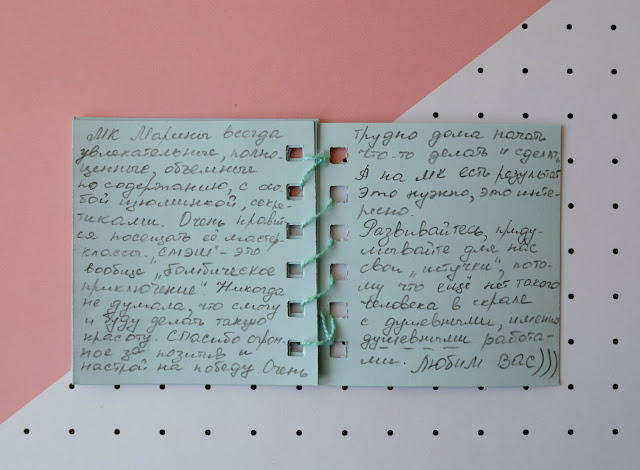 МК Марины всегда
увлекательные, полно-
ценные, объёмные
по содержанию, с осо-
бой изюминкой, секре-
тиками. Очень нравит-
ся посещать её мастер-
классы. „СМЭШ" - это
вообще „бомбическое
приключение" Никогда
не думала, что смогу
и буду делать такую
красоту. Спасибо огром-
ное за позитив и
настрой на победу. Очень
трудно дома начать
что-то делать и сделать
А на МК есть результат
Это нужно, это инте-
ресно.
Развивайтесь, приду-
мывайте для нас
свои „штучки", пото-
му что ещё нет такого
человека в скрапе
с душевными, именно
душевными работа-
ми. Любим Вас)))